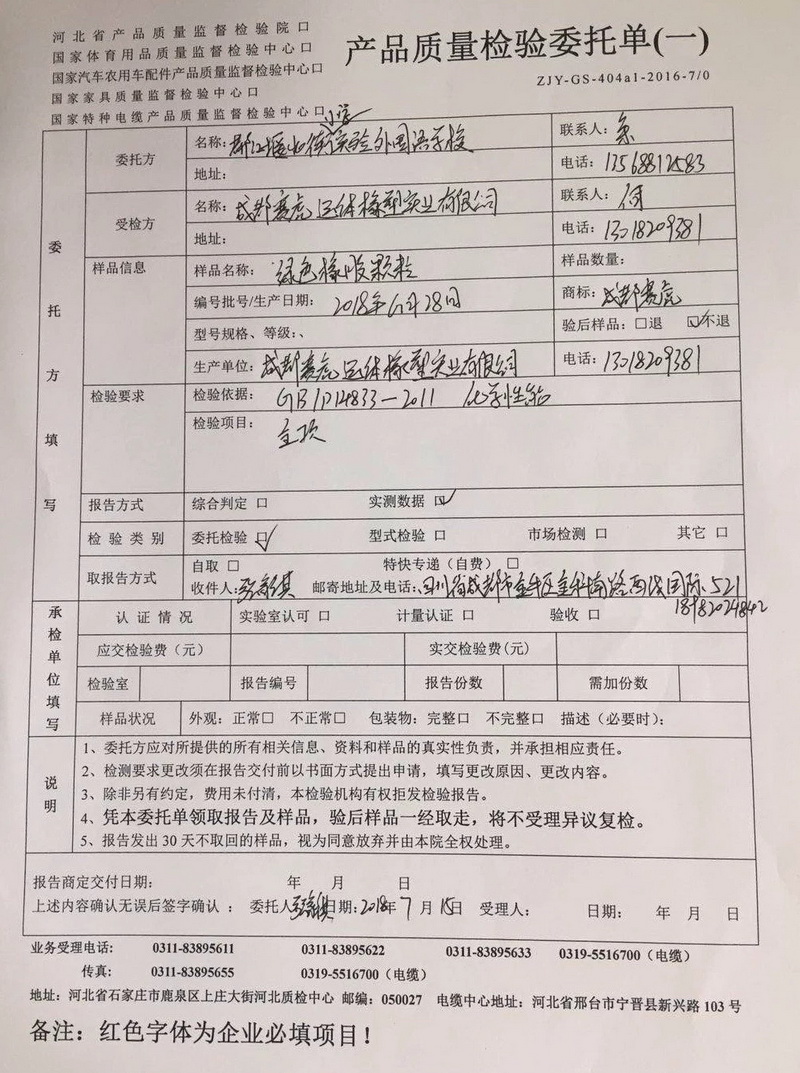 河北省产品质量监督检验院口
国家体育用品质量监督检验中心口
国家汽车农用车配件产品质量监督检验中心口
国家家具质量监督检验中心口
国家特种电缆产品质量监督检验中心口
产品质量检验委托单(一)
ZJY-GS-404a1-2016-7/0
小学
委托方填写
委托方
名称：都江堰北街实验外国语学校
联系人：
地址：
电话：13568812583
受检方
名称：成都赛虎运体橡塑实业有限公司
联系人：何
地址：
电话：13018209381
样品信息
样品名称：绿色橡胶颗粒
样品数量：
编号批号/生产日期：2018年6月28日
商标：成都赛虎
型号规格、等级：、
验后样品：□退 ☑不退
生产单位：成都赛虎运体橡塑实业有限公司
电话：13018209381
检验要求
检验依据：GB/T14833-2011 化学性能
检验项目：
全项
报告方式
综合判定 口
实测数据 ☑
检验类别
委托检验 ☑
型式检验 口
市场检测 口
其它 口
取报告方式
自取 □
特快专递（自费）□
收件人： 邮寄地址及电话：四川省成都市金牛区金科南路西城国际.521
18982024842
承检单位填写
认证情况
实验室认可 口
计量认证 口
验收 口
应交检验费（元）
实交检验费(元)
检验室
报告编号
报告份数
需加份数
样品状况
外观：正常□ 不正常□ 包装物：完整口 不完整口 描述（必要时）：
说明
1、委托方应对所提供的所有相关信息、资料和样品的真实性负责，并承担相应责任。
2、检测要求更改须在报告交付前以书面方式提出申请，填写更改原因、更改内容。
3、除非另有约定，费用未付清，本检验机构有权拒发检验报告。
4、凭本委托单领取报告及样品，验后样品一经取走，将不受理异议复检。
5、报告发出30天不取回的样品，视为同意放弃并由本院全权处理。
报告商定交付日期： 年 月 日
上述内容确认无误后签字确认： 委托人 日期：2018年7月15日 受理人： 日期： 年 月 日
业务受理电话： 0311-83895611 0311-83895622 0311-83895633 0319-5516700（电缆）
传真： 0311-83895655 0319-5516700（电缆）
地址：河北省石家庄市鹿泉区上庄大街河北质检中心 邮编：050027 电缆中心地址：河北省邢台市宁晋县新兴路103号
备注：红色字体为企业必填项目！